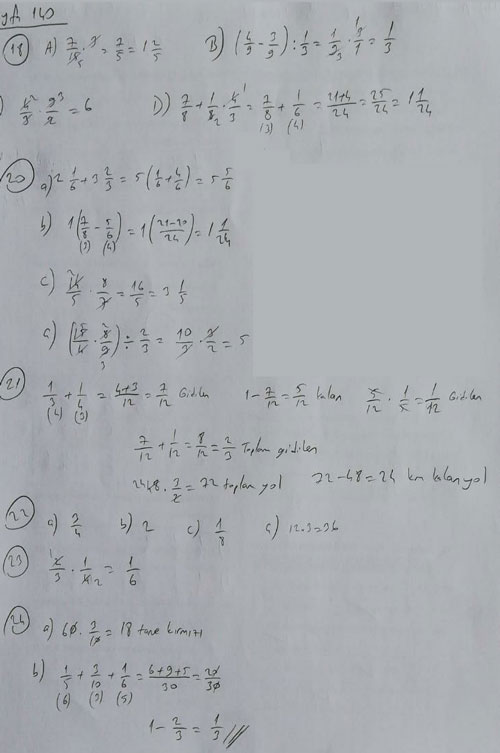 140
18 A) 7/15 · 3 = 7/5 = 1 2/5 B) (4/9 - 3/9) : 1/3 = 1/9 · 3/1 = 1/3
) 4/3 · 9/2 = 6 D) 7/8 + 1/8 · 4/3 = 7/8 + 1/6 = 21+4/24 = 25/24 = 1 1/24
(3) (4)
20 a) 2 1/6 + 3 2/3 = 5 (1/6 + 4/6) = 5 5/6
b) 1 (7/8 - 5/6) = 1 (21-20/24) = 1 1/24
(3) (4)
c) 14/5 · 8/7 = 16/5 = 3 1/5
ç) (15/4 · 8/9) ÷ 2/3 = 10/3 · 3/2 = 5
21 1/3 + 1/4 = 4+3/12 = 7/12 Gidilen 1 - 7/12 = 5/12 kalan 5/12 · 1/5 = 1/12 Gidilen
(4) (3)
7/12 + 1/12 = 8/12 = 2/3 Toplam gidilen
48 · 3/2 = 72 toplam yol 72-48=24 km kalan yol
22 a) 3/4 b) 2 c) 1/8 ç) 12.3=36
23 2/3 · 1/4 = 1/6
24 a) 60 · 3/10 = 18 tane kırmızı
b) 1/5 + 3/10 + 1/6 = 6+9+5/30 = 20/30
(6) (3) (5)
1 - 2/3 = 1/3